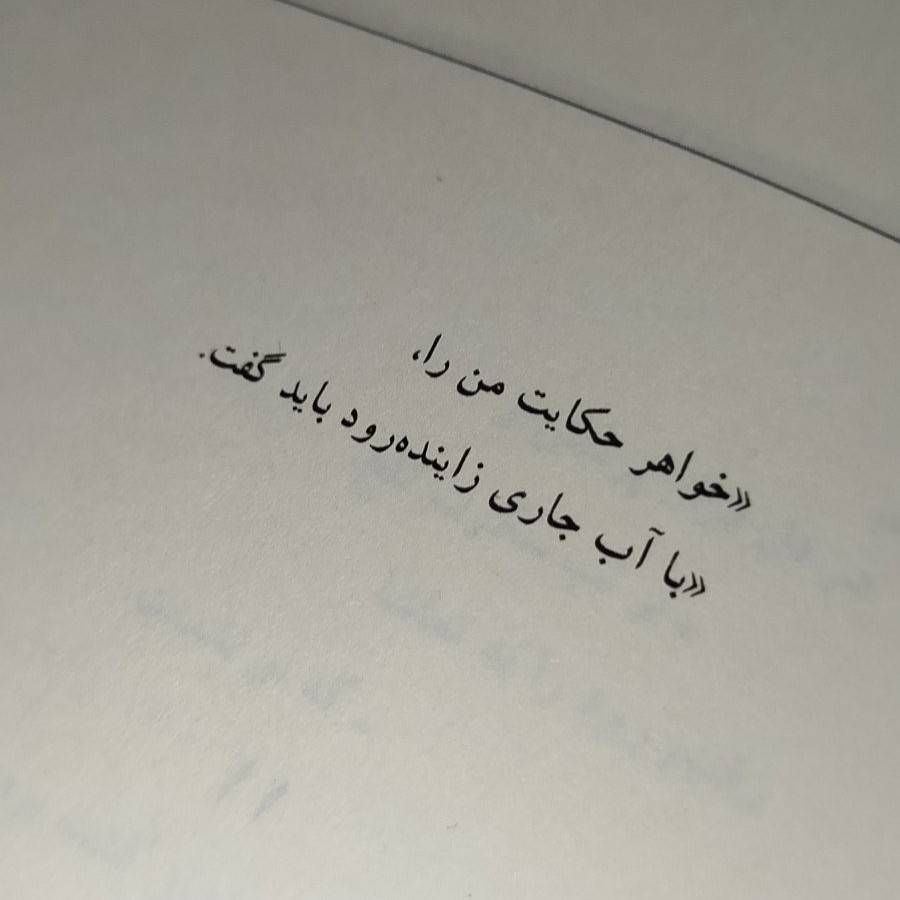 «خواهر حکایت من را،
«با آب جاری زاینده‌رود باید گفت.